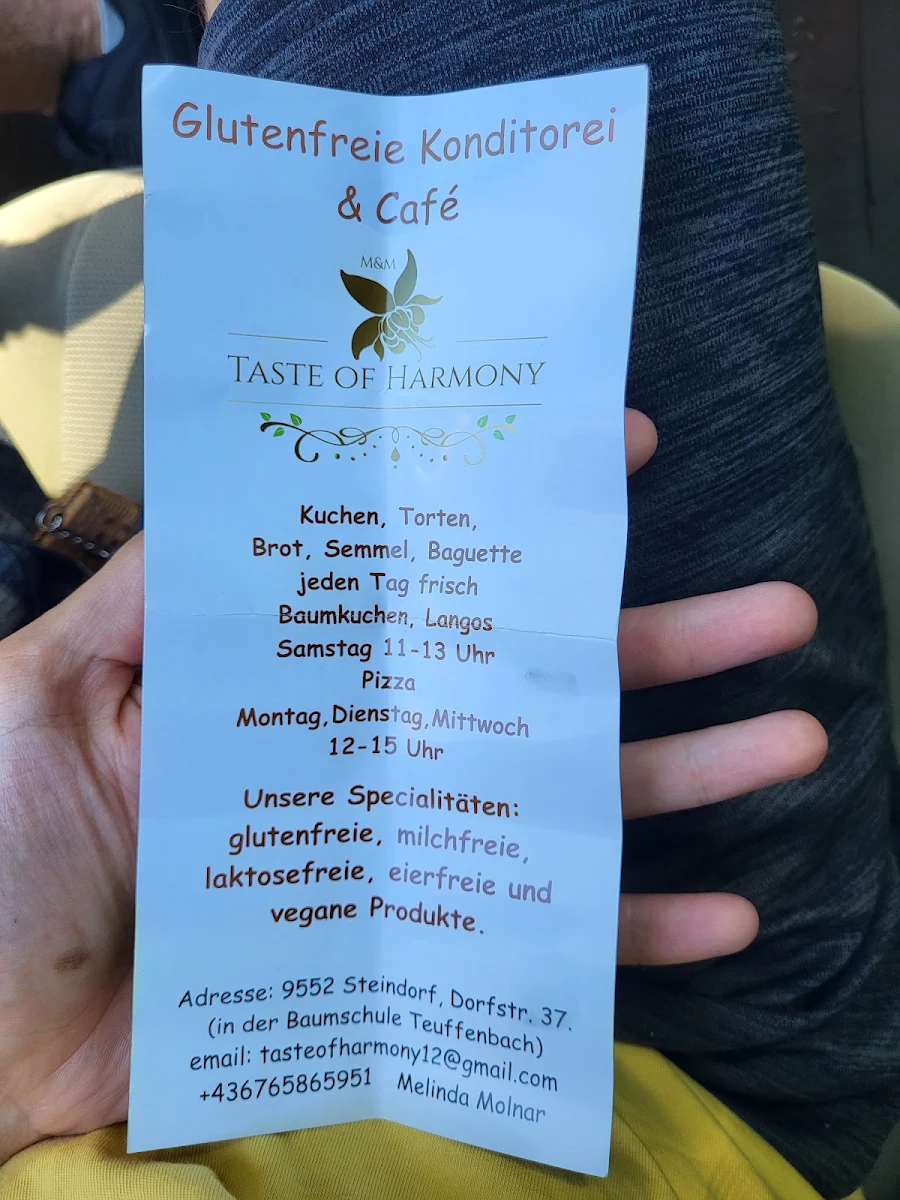 Glutenfreie Konditorei
& Café
M&M
TASTE OF HARMONY
Kuchen, Torten,
Brot, Semmel, Baguette
jeden Tag frisch
Baumkuchen, Langos
Samstag 11-13 Uhr
Pizza
Montag,Dienstag,Mittwoch
12-15 Uhr
Unsere Specialitäten:
glutenfreie, milchfreie,
laktosefreie, eierfreie und
vegane Produkte.
Adresse: 9552 Steindorf, Dorfstr. 37.
(in der Baumschule Teuffenbach)
email: tasteofharmony12@gmail.com
+436765865951 Melinda Molnar